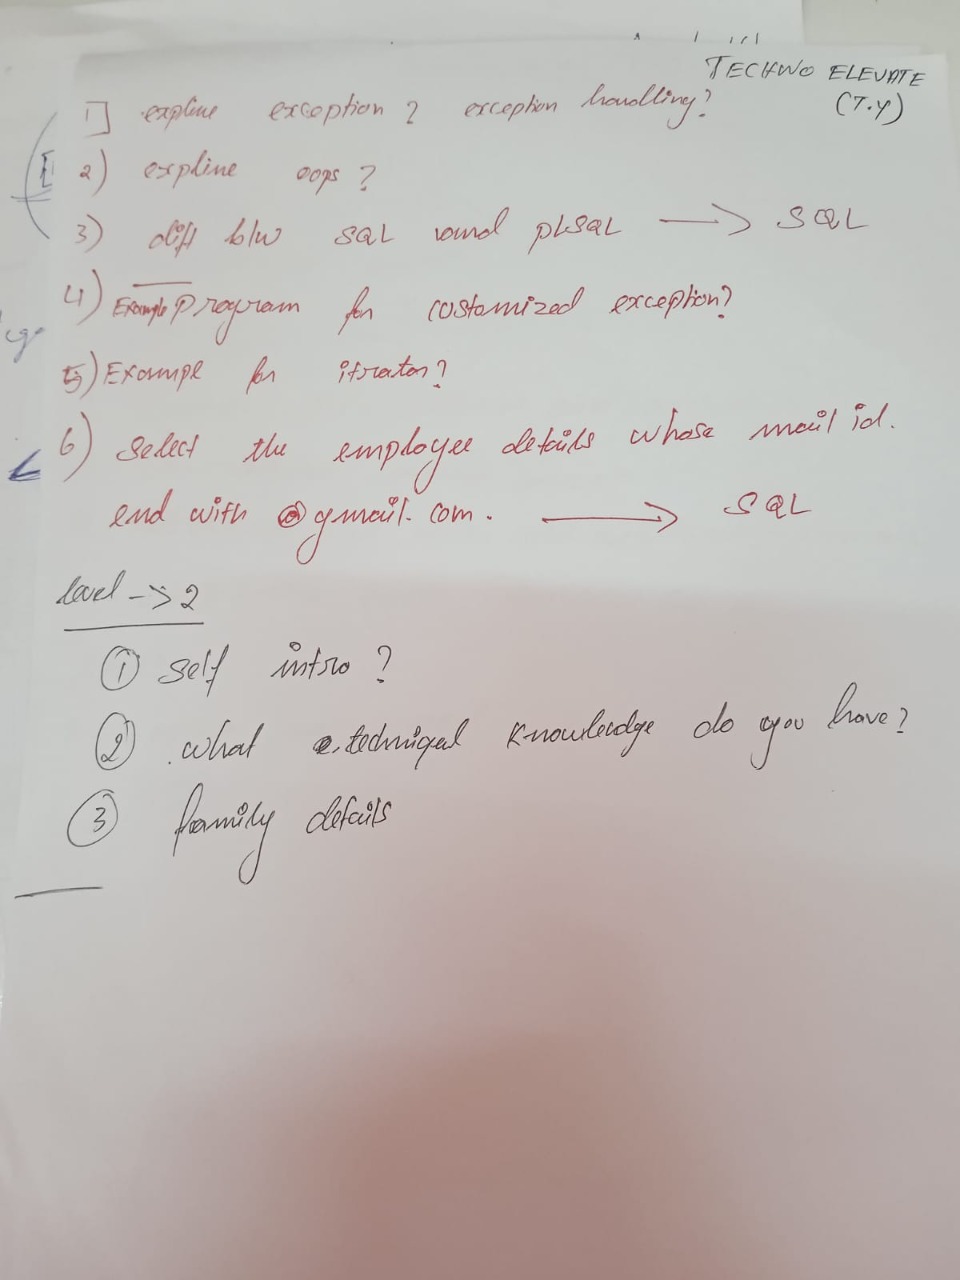 TECHNO ELEVATE
(T.Y)
1] expline exception? exception handling?
2) expline oops?
3) diff b/w SQL and PLSQL → SQL
4) Example program for costomized exception?
5) Example for itrator?
6) Select the employee details whose mail id.
end with @gmail.com. → SQL
level -> 2
① Self intro?
② what techniqal knowledge do you have?
③ family details